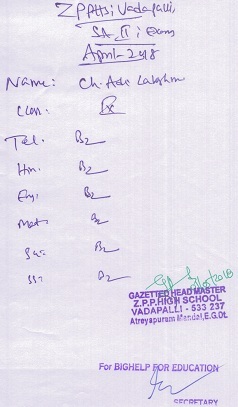 Z.P.P.H.S; Vadapalli,
SA II ; Exam
April-2018
Name: Ch. Adi Lakshmi
Class: IX
Tel. B2
Hin. B2
Eng. B2
Mat. B2
B2
SS: B2
GAZETTED HEAD MASTER
Z.P.P.HIGH SCHOOL
VADAPALLI - 533 237
Atreyapuram Mandal,E.G.Dt.
For BIGHELP FOR EDUCATION
SECRETARY